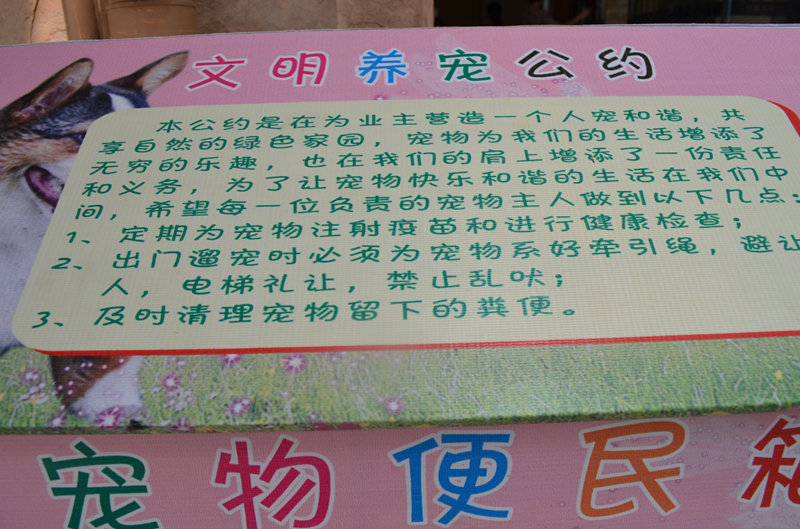 文明养宠公约
本公约是在为业主营造一个人宠和谐，共
享自然的绿色家园，宠物为我们的生活增添了
无穷的乐趣，也在我们的肩上增添了一份责任
和义务，为了让宠物快乐和谐的生活在我们中
间，希望每一位负责的宠物主人做到以下几点：
1、定期为宠物注射疫苗和进行健康检查；
2、出门遛宠时必须为宠物系好牵引绳，避让
人，电梯礼让，禁止乱吠；
3、及时清理宠物留下的粪便。
宠物便民箱